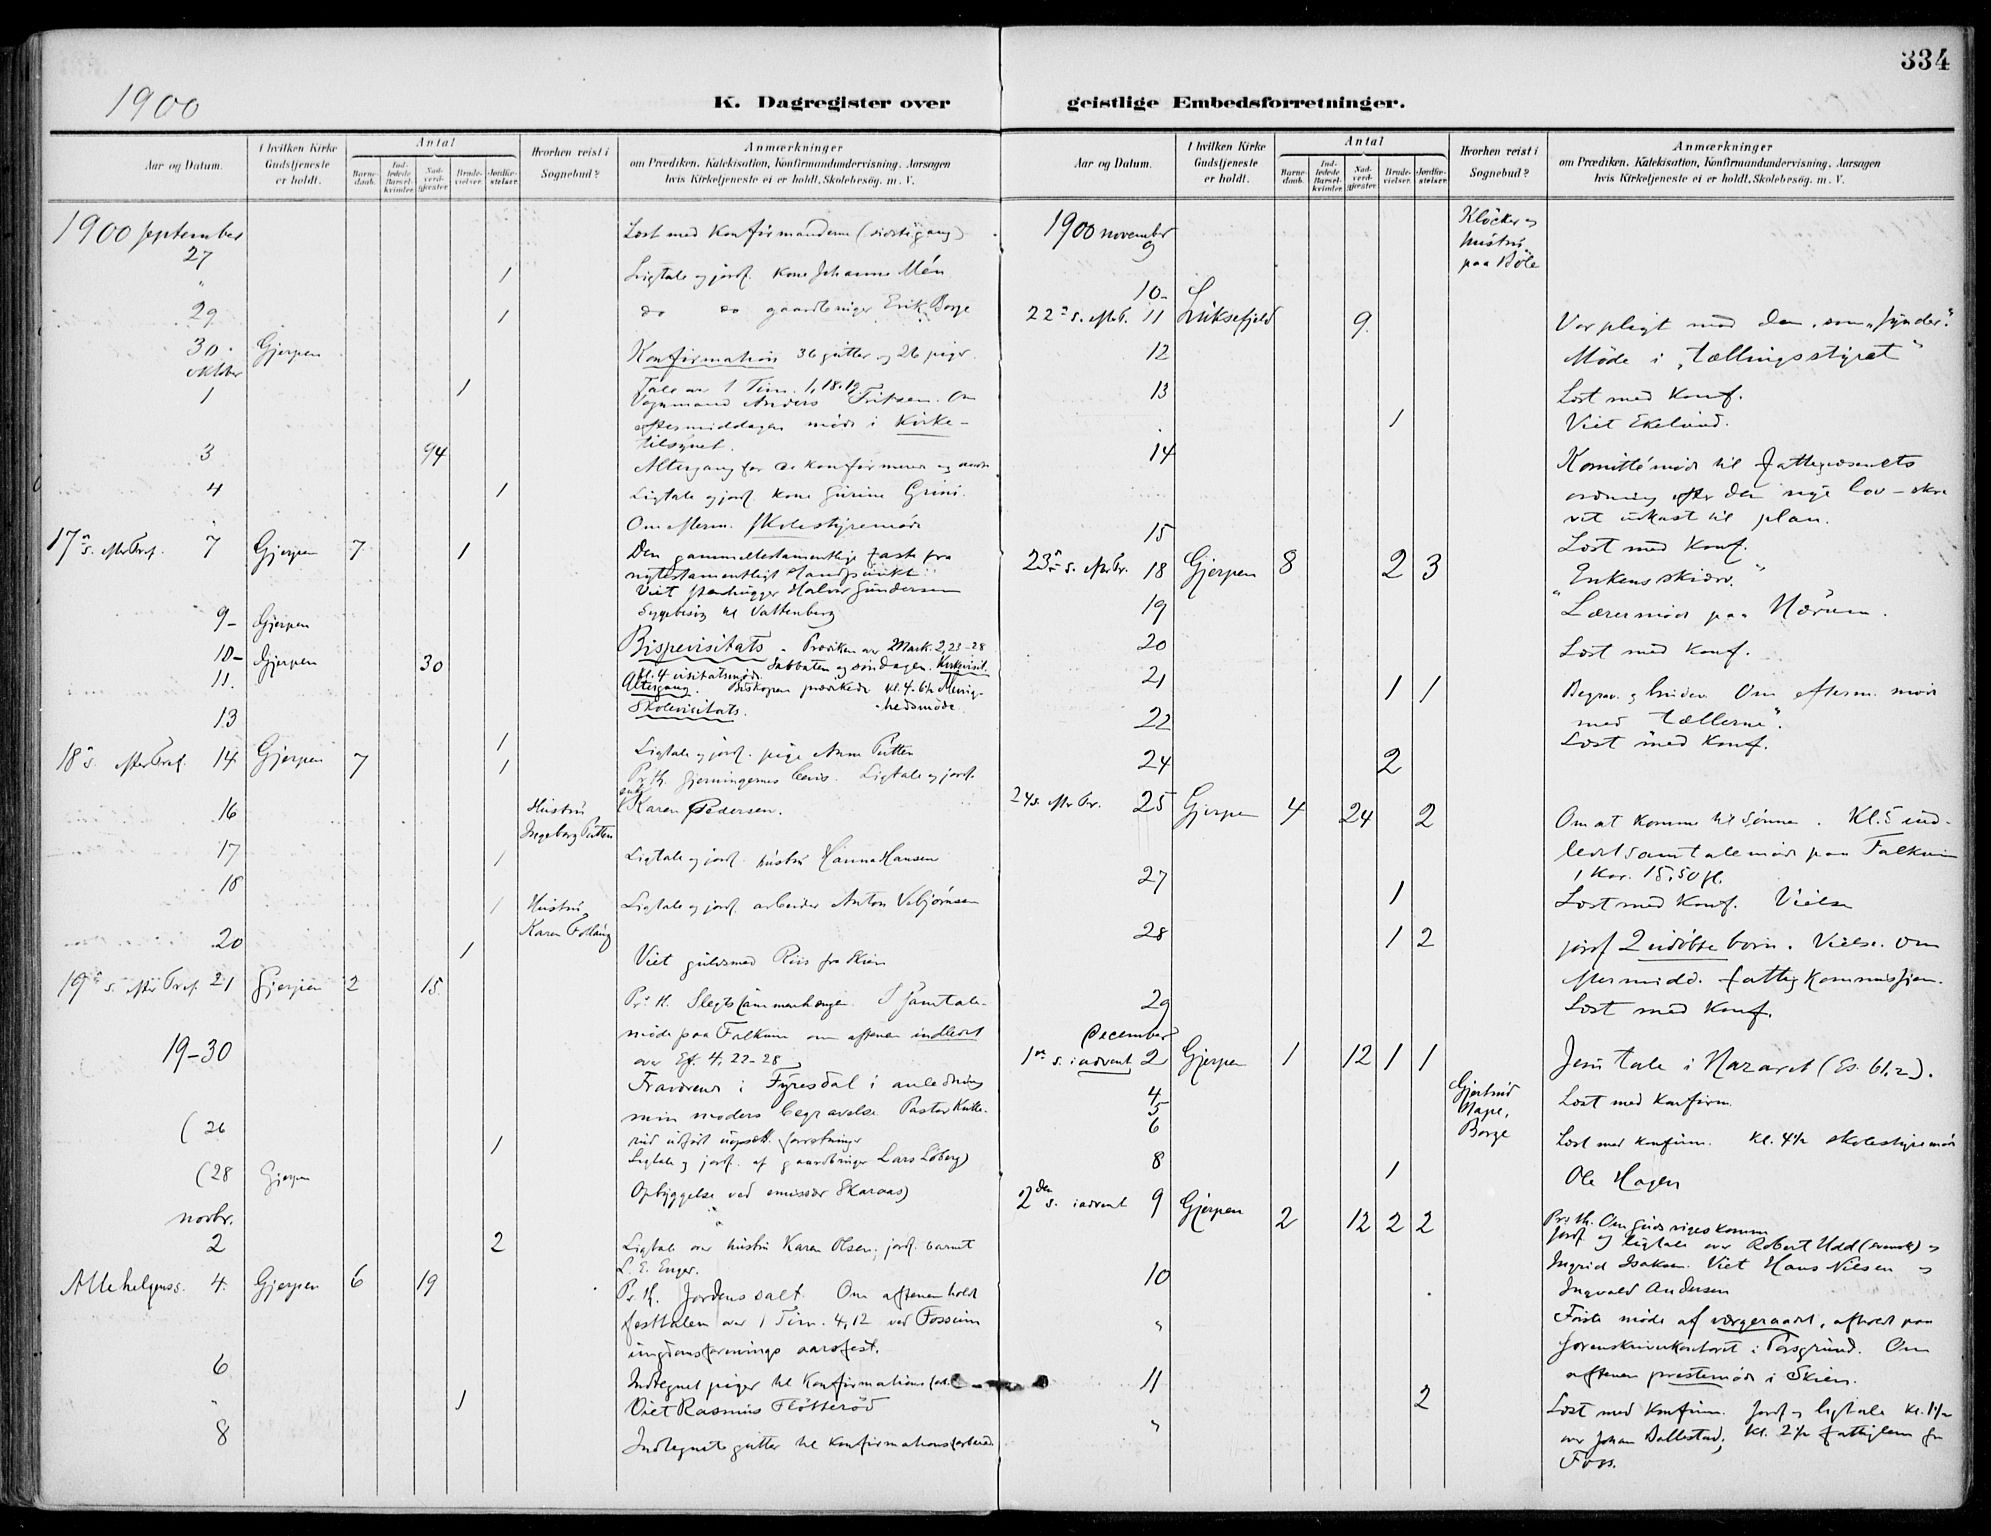 334
1900
K. Dagregister over
geistlige Embedsforretninger.
Aar og Datum.
I hvilken Kirke Gudstjeneste er holdt.
Antal
Barnedaab.
Indledede Barselkvinder.
Nadverdgjester.
Brudevielser.
Jordfæstelser.
Hvorhen reist i Sognebud?
Anmærkninger
om Prædiken, Katekisation, Konfirmandundervisning, Aarsagen
hvis Kirketjeneste ei er holdt, Skolebesøg. m. V.
1900 september
27 Læst med Konfirmanderne (sidste gang)
" 1 Ligtale og jordf. kone Johanne Mén
29 1 do do gaardbruger Erik Borge
30 Gjerpen Konfirmation 36 gutter og 26 piger.
Tale over 1 Tim. 1,18.19.
oktober
1 1 Vognmand Anders Eriksen. Om
eftermiddagen møde i Kirke-
tilsynet.
3 94 Altergang for de konfirmerede og andre
4 1 Ligtale og jordf. kone Gurine Grini.
" Om efterm. skolestyremøde
17de s. efter Tref. 7 Gjerpen 7 1 Den gammeltestamentlige faste fra
nytestamentligt standpunkt.
Viet stenhugger Halvor Gundersen
Sygebesøg til Vattenberg
9 Gjerpen
10 Gjerpen 30 Bispevisitats. Præken over Mark. 2,23-28
Sabbaten og søndagen. Kirkevisit.
kl. 4 visitatsmøde.
11. Altergang. Biskopen prækede kl. 4. 6½ Menig-
hedsmøde.
Skolevisitats.
13 1 Ligtale og jordf. pige Anne Putten
18de s. efter Tref. 14 Gjerpen 7 1 Pr. Th. Gjerningernes bevis. Ligtale og jordf.
enke Karen Pedersen.
16 Hustru
Ingeborg Putten
17 1 Ligtale og jordf. hustru Hanna Hansen
18 1 Hustru Ligtale og jordf. arbeider Anton Vebjørnsen
Karen Follaug
20 1 Viet guldsmed Riis fra Skien
19de s. efter Tref. 21 Gjerpen 2 15 Pr. Th. Slegtssammenhengen. I samtale-
møde paa Falkum om aftenen indledet
over Ef. 4, 22-28
19-30 Fraværende i Fyresdal i anledning
min moders begravelse. Pastor
udført uopsætt. forretninger
(26 1 Ligtale og jordf. af gaardbruger Lars Loberg)
(28 Gjerpen Opbyggelse ved emissær Skaraas)
novbr.
2 2 Ligtale over hustru Karen Olsen; jordf. barnet
L. E. Enger.
Allehelgenss. 4. Gjerpen 6 19 Pr. Th. Jordens salt. Om aftenen holdt
festtalen over 1 Tim. 4,12 ved Fossum
ungdomsforenings aarsfest.
6 Indtegnet piger til konfirmationsforb.
" 1 Viet Rasmus Fløtterød
8 Indtegnet gutter til konfirmationsforbered.
Aar og Datum.
I hvilken Kirke Gudstjeneste er holdt.
Antal
Barnedaab.
Indledede Barselkvinder.
Nadverdgjester.
Brudevielser.
Jordfæstelser.
Hvorhen reist i Sognebud?
Anmærkninger
om Prædiken, Katekisation, Konfirmandundervisning, Aarsagen
hvis Kirketjeneste ei er holdt, Skolebesøg. m. V.
1900 november
9 Klöcker og
hustru
paa Böle
10
22de s. eft. tr. 11 Luksefjeld 9 Vor pligt mod den, som "synder".
12 Møde i "tællingsstyret"
13 Læst med konf.
1 Viet Ekelund.
14 Komitémøde til fattigvæsenets
ordning efter den nye lov - skre
vet utkast til plan.
15 Læst med konf.
23de s. efter tr. 18 Gjerpen 8 2 3 "Enkens skjærv."
19 "Lærermøde paa Nærum.
20 Læst med konf.
21 1 1 Begrav. og brudev. Om efterm. møde
med "tællerne".
22 Læst med konf.
24 2
24 s. efter tr. 25 Gjerpen 4 24 2 Om at komme til Sønnen. Kl. 5 ind-
ledet samtalemøde paa Falkum
1 Kor. 15,50 fl.
27 1 Læst med konf. Vielse
28 1 2 jordf 2 udøbte børn. Vielse. Om
eftermidd. fattigkommission.
29 Læst med konf.
December
1ste s. i advent 2 Gjerpen 1 12 1 1 Jesu tale i Nazaret (Es. 61.2).
4 Gjertrud Læst med konfirm.
5 Nape,
6 Borge Læst med konfirm. kl. 4½ skolestyremøde
8 1 Ole Hagen
2den s. i advent 9 Gjerpen 2 12 2 2 Pr. Th. Om Guds riges komme
Jordf. og ligtale over Robert Udd (svensk) og
Ingrid Isaksen. Viet Hans Nilsen og
Ingvald Andersen
10 Første møde af vergeraadet, aftvedt paa
sorenskriverkontoret i Porsgrund. Om
" aftenen prestemøde i Skien.
11 2 Læst med konfirm. Jordf. og ligtale kl. 1½
over Johan Ballestad; kl. 2½ fattiglem fra
" Foss.